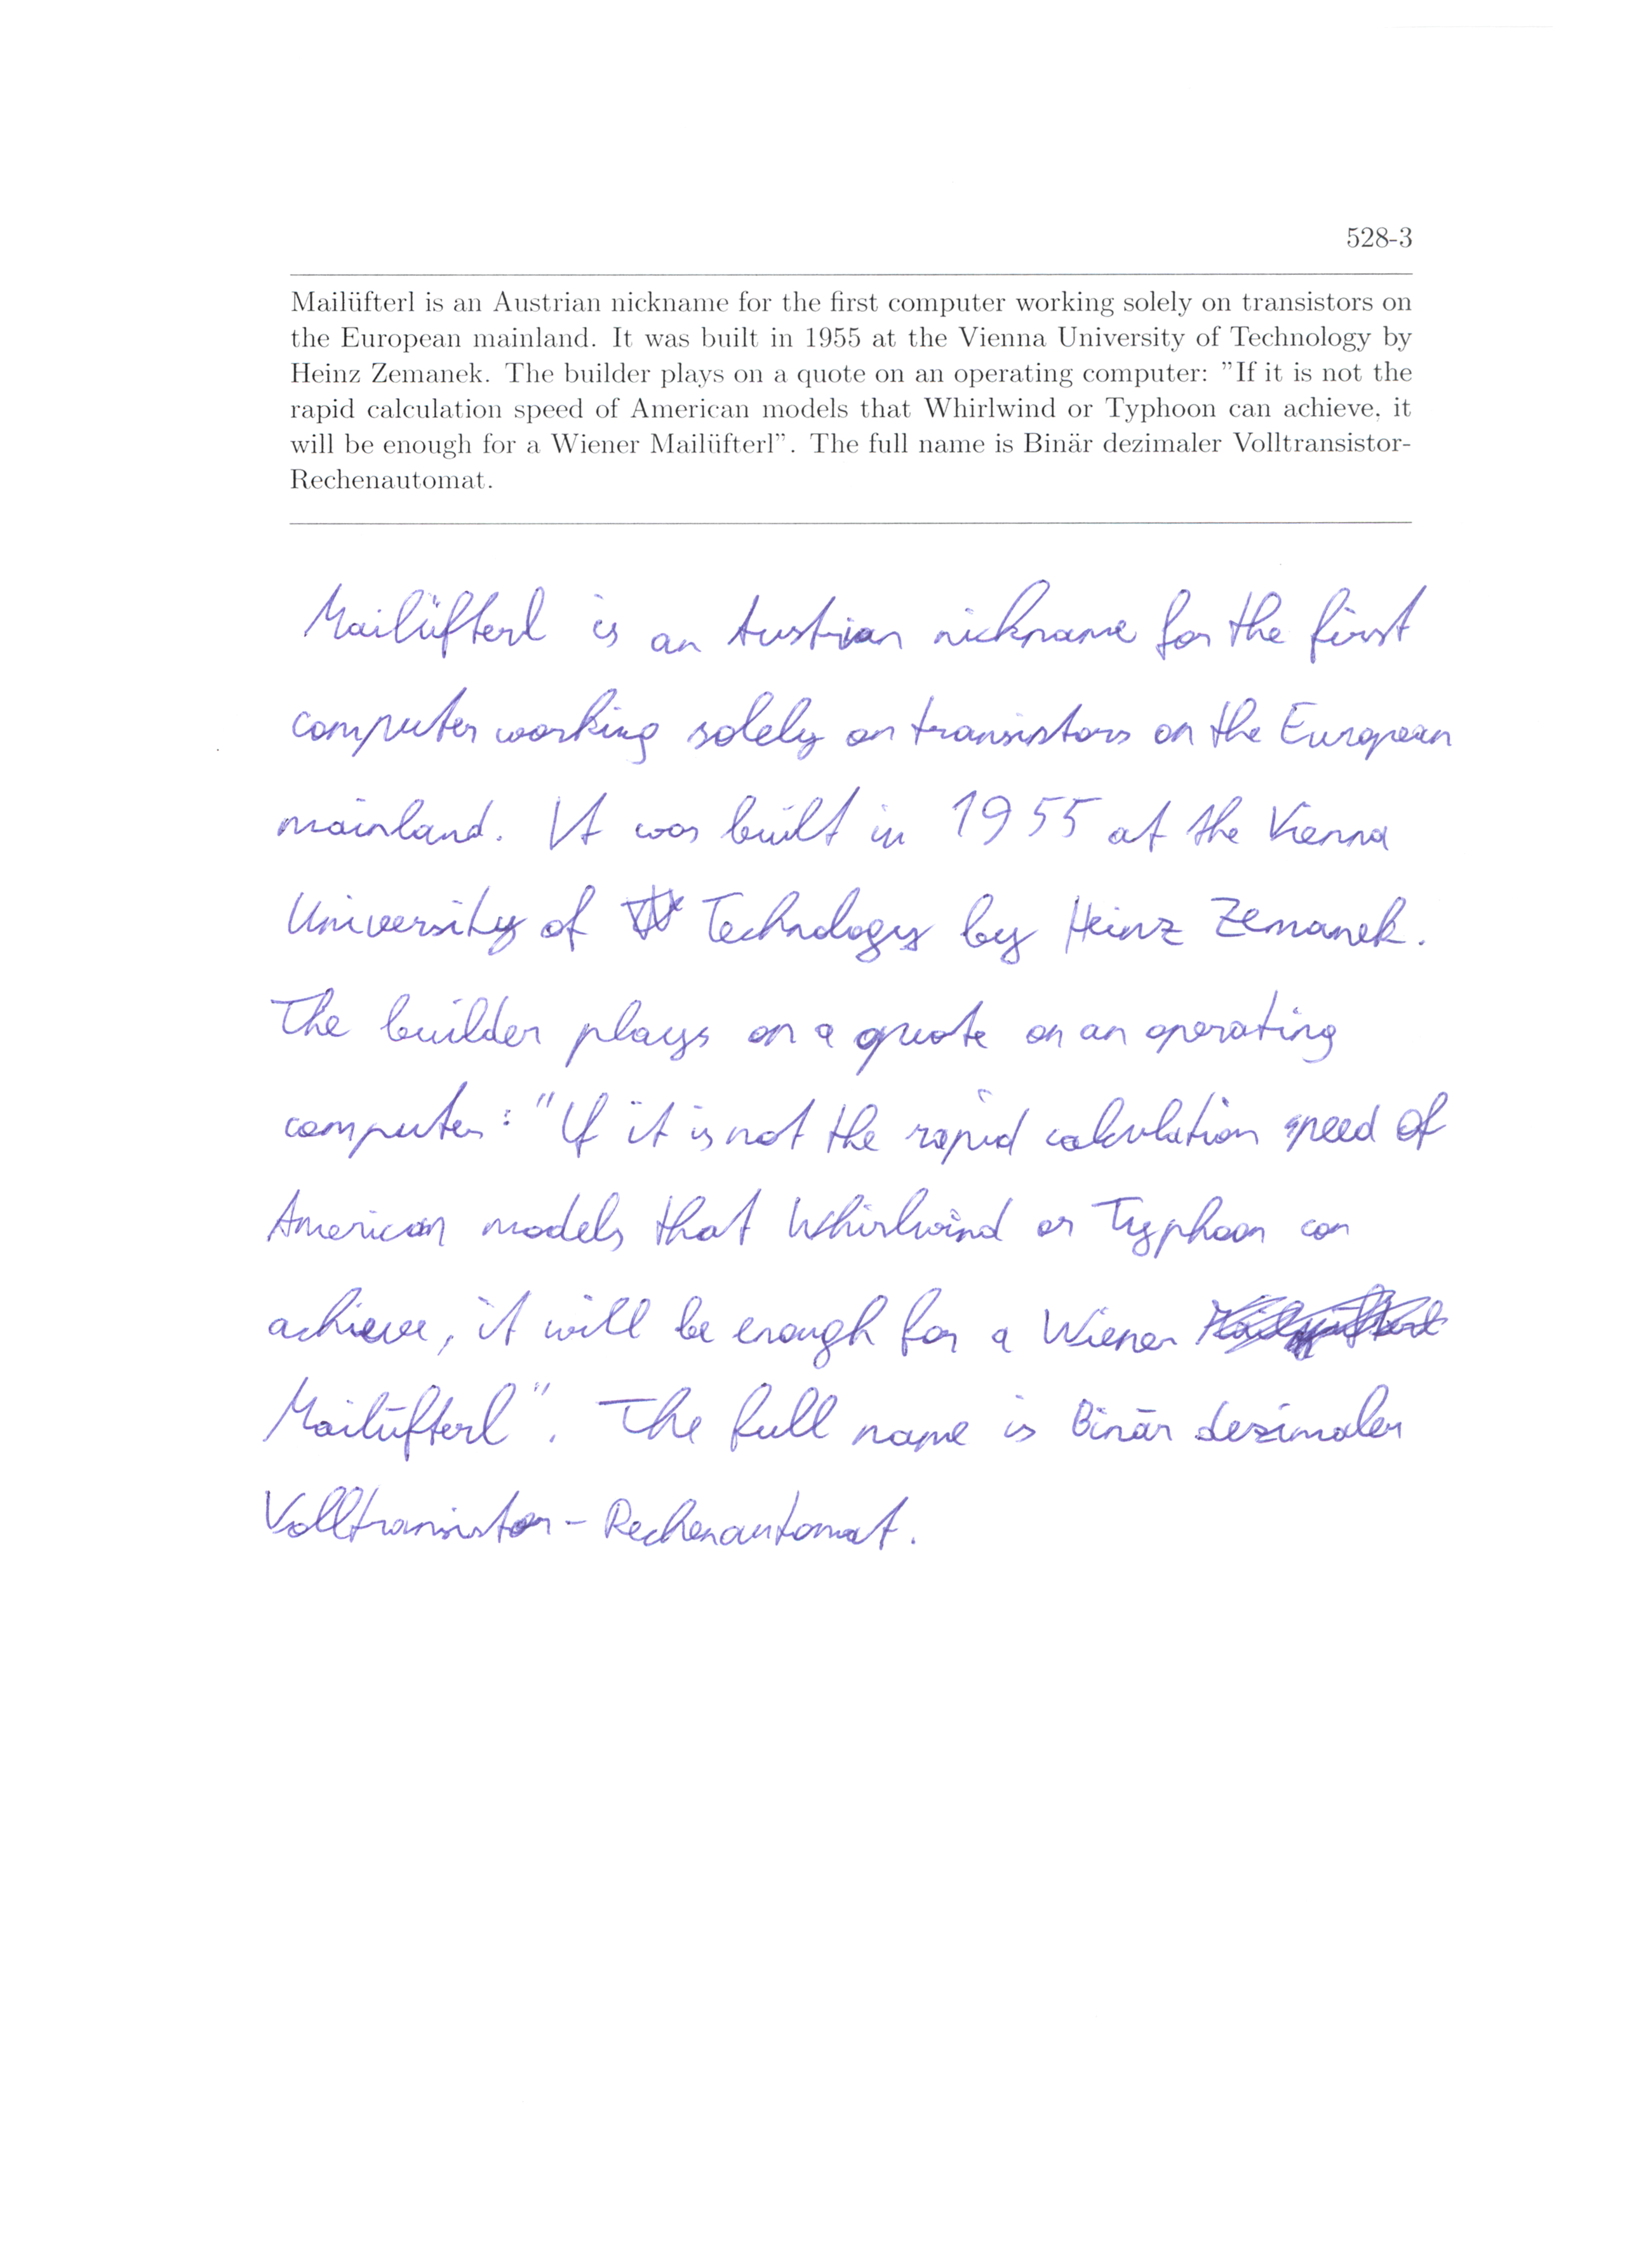 528-3
Mailüfterl is an Austrian nickname for the first computer working solely on transistors on
the European mainland. It was built in 1955 at the Vienna University of Technology by
Heinz Zemanek. The builder plays on a quote on an operating computer: "If it is not the
rapid calculation speed of American models that Whirlwind or Typhoon can achieve, it
will be enough for a Wiener Mailüfterl". The full name is Binär dezimaler Volltransistor-
Rechenautomat.
Mailüfterl is an Austrian nickname for the first
computer working solely on transistors on the European
mainland. It was built in 1955 at the Vienna
University of Technology by Heinz Zemanek.
The builder plays on a quote on an operating
computer: "If it is not the rapid calculation speed of
American models that Whirlwind or Typhoon can
achieve, it will be enough for a Wiener
Mailüfterl". The full name is Binär dezimaler
Volltransistor-Rechenautomat.